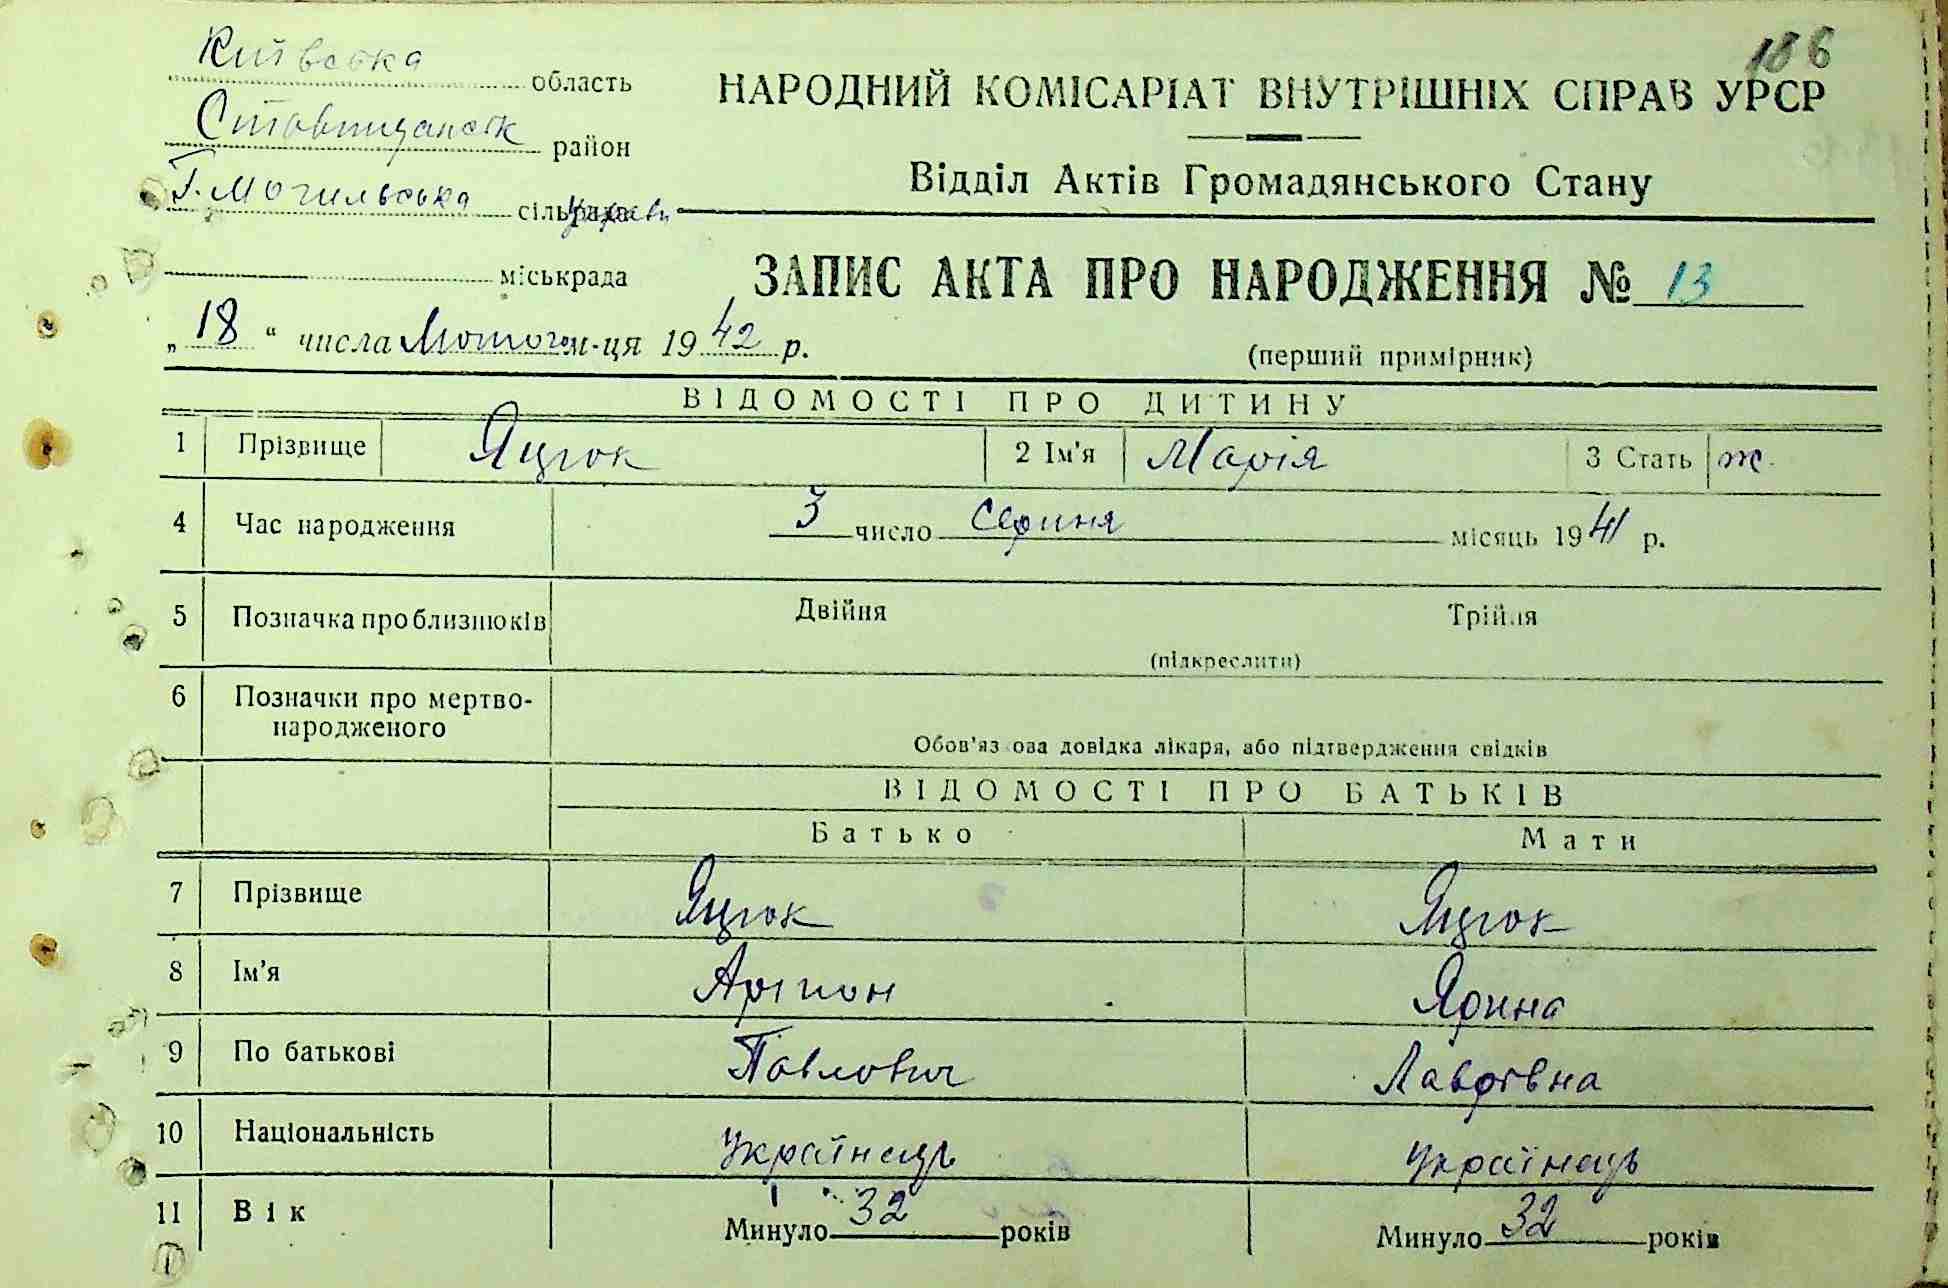 186
Київська область
НАРОДНИЙ КОМІСАРІАТ ВНУТРІШНІХ СПРАВ УРСР
Ставищанськ район
Відділ Актів Громадянського Стану
Г. Могильська сільрада управи
міськрада
ЗАПИС АКТА ПРО НАРОДЖЕННЯ № 13
„18“ числа Лютого м-ця 1942 р.
(перший примірник)
ВІДОМОСТІ ПРО ДИТИНУ
1 Прізвище Яцюк 2 Ім'я Марія 3 Стать ж.
4 Час народження 3 число серпня місяць 1941 р.
5 Позначка про близнюків Двійня Трійля
(підкреслити)
6 Позначки про мертво-
народженого
Обов'яз ова довідка лікаря, або підтвердження свідків
ВІДОМОСТІ ПРО БАТЬКІВ
Батько Мати
7 Прізвище Яцюк Яцюк
8 Ім'я Ярина
9 По батькові Павлович Лаврівна
10 Національність Українець Українець
11 Вік Минуло 32 років Минуло 32 років